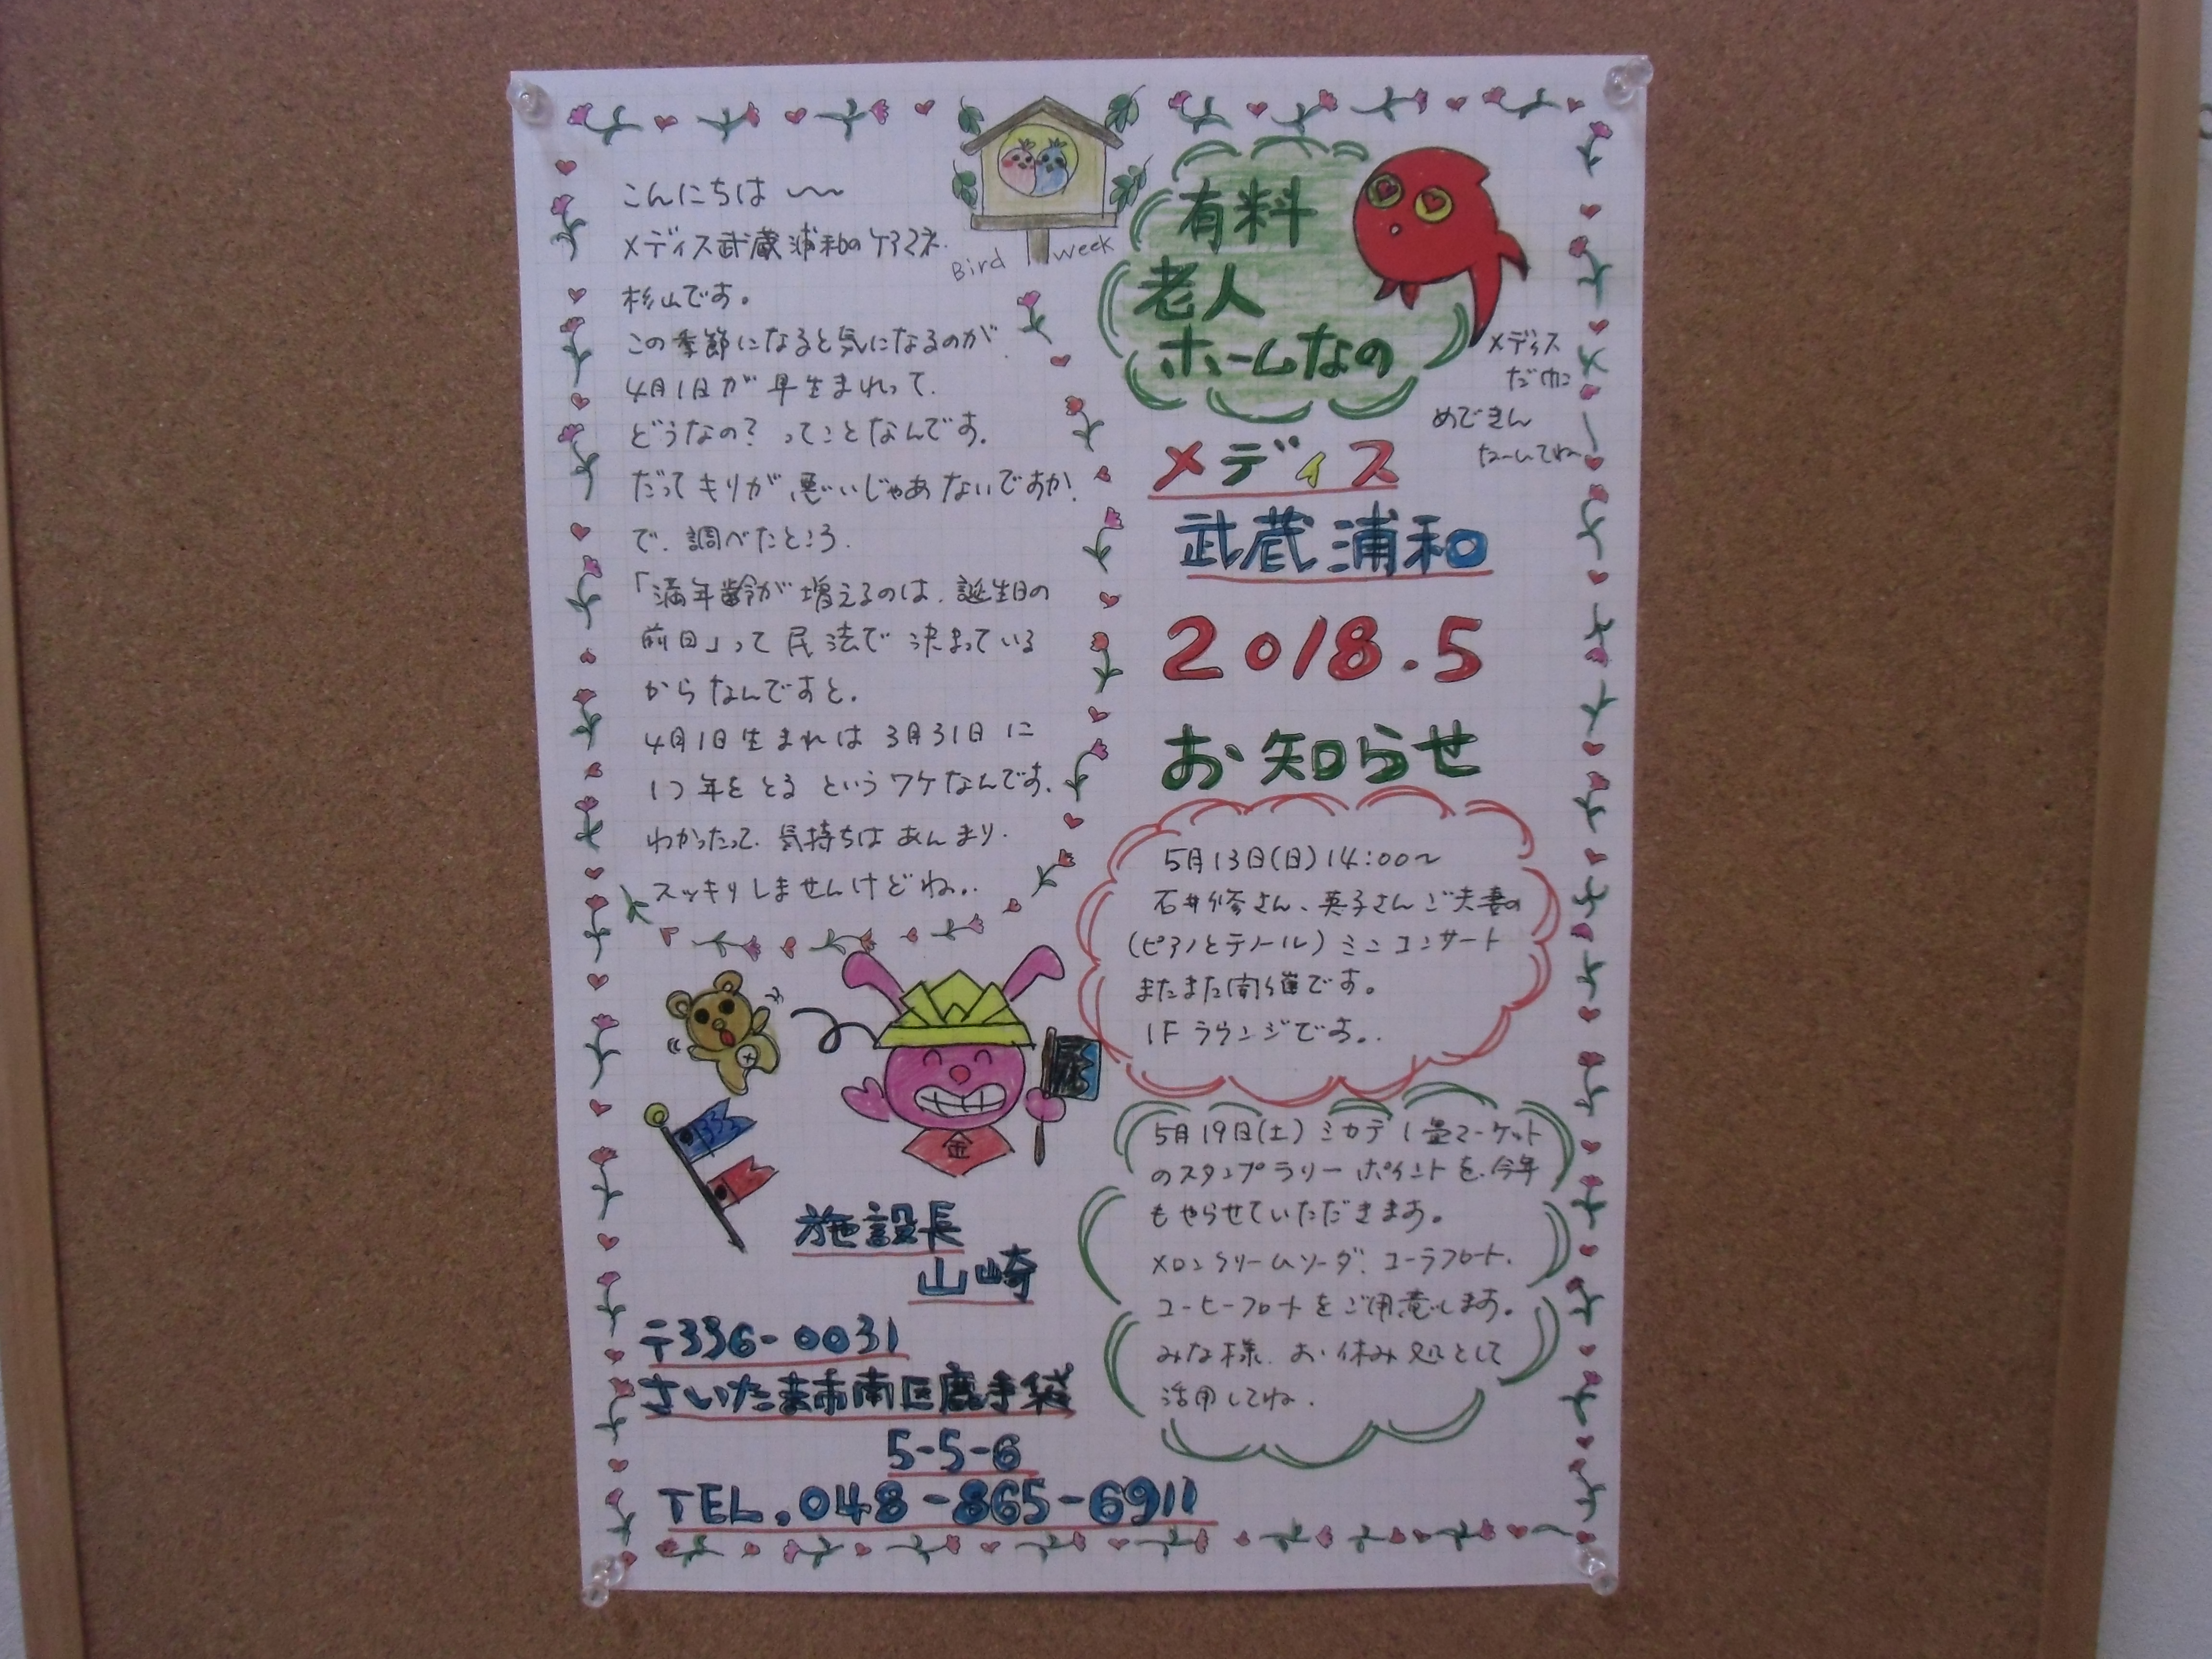 こんにちは 〜
メディス武蔵浦和のケアマネ
杉山です。
この季節になると気になるのが
4月1日が早生まれって、
どうなの?ってことなんです。
だってキリが悪いじゃあないですか。
で、調べたところ、
「満年齢が増えるのは、誕生日の
前日」って民法で決まっている
からなんですと。
4月1日生まれは3月31日に
1つ年をとるというワケなんです。
わかったって、気持ちはあんまり
スッキリしませんけどね。
Bird week
有料
老人
ホームなの
メディス
めできん
メディス
武蔵浦和
2018.5
お知らせ
5月13日(日)14:00〜
石井修さん、英子さんご夫妻の
(ピアノとテノール)ミニコンサート
またまた開催です。
1Fラウンジです。
5月19日(土)ミカデ1畳マーケット
のスタンプラリーポイントを、今年
もやらせていただきます。
メロンクリームソーダ、コーラフロート、
コーヒーフロートをご用意します。
みな様、お休み処として
活用してね。
金
施設長
山崎
〒336-0031
さいたま市南区鹿手袋
5-5-6
TEL.048-865-6911